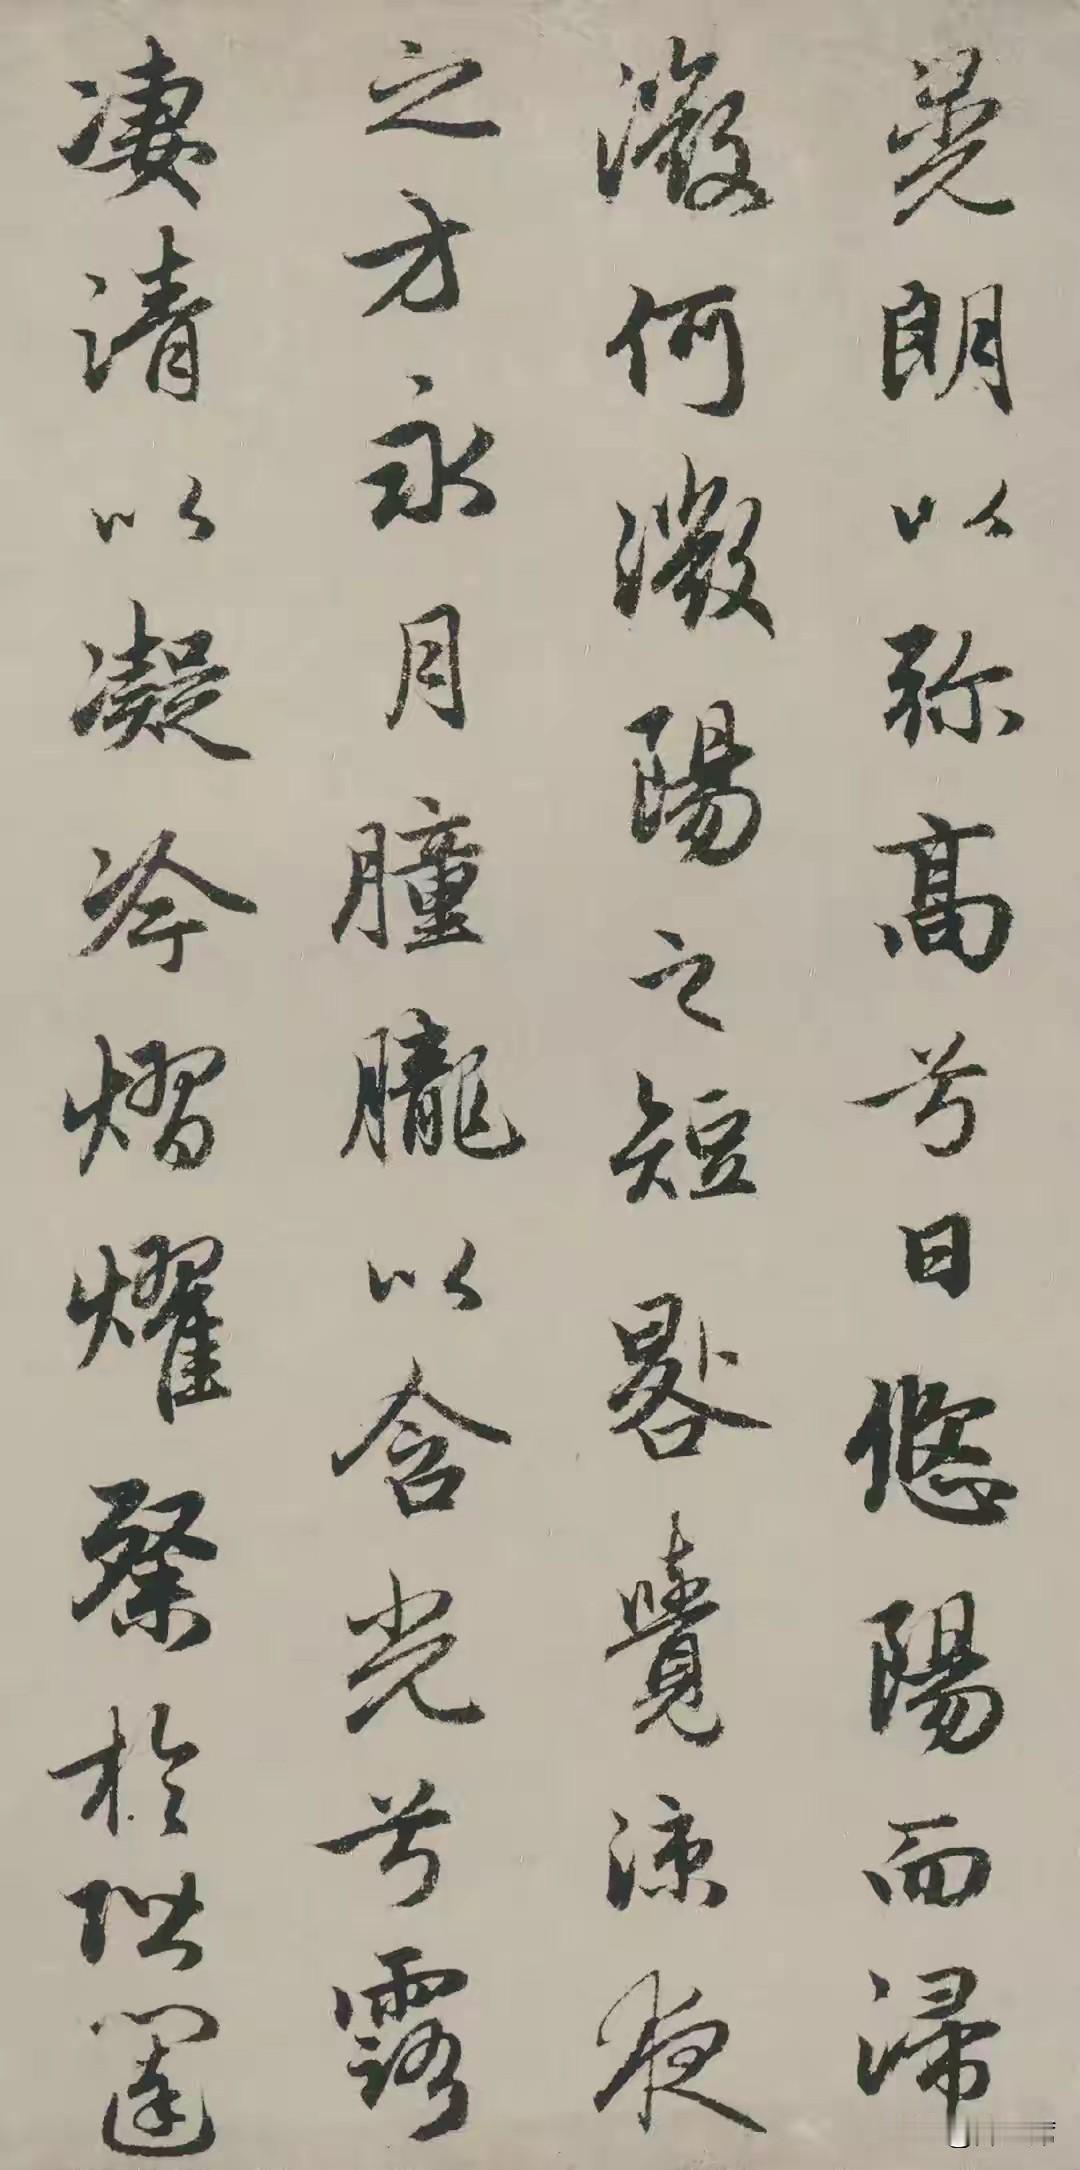 晃朗以弥高兮日悠陽而浸
微何微陽之短晷覺涼夜
之方永月朣朧以含光兮露
凄清以凝冷熠燿粲於階闥